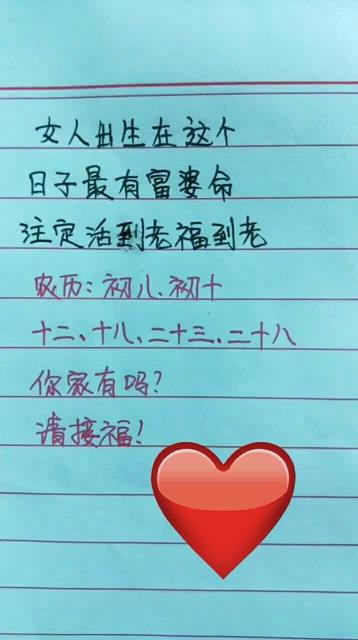 女人出生在这个
日子最有富婆命
注定活到老福到老
农历：初八、初十
十二、十八、二十三、二十八
你家有吗？
请接福！